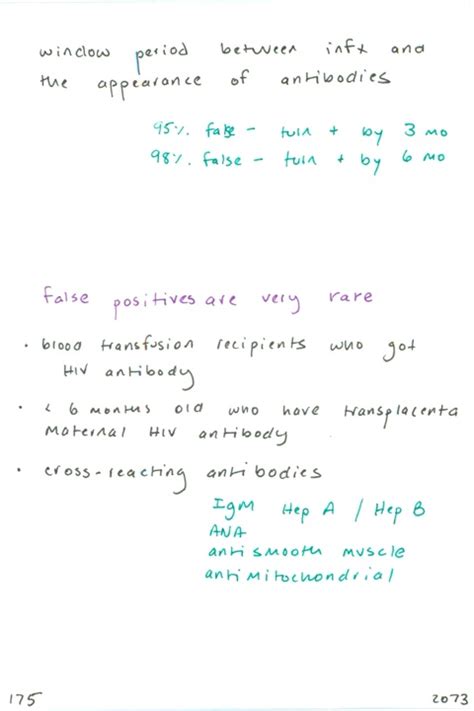 window period between infx and
the appearance of antibodies
95%. false - turn + by 3 mo
98%. false - turn + by 6 mo
false positives are very rare
• blood transfusion recipients who got
HIV antibody
• < 6 months old who have transplacenta
maternal HIV antibody
• cross-reacting antibodies
IgM Hep A / Hep B
ANA
anti smooth muscle
anti mitochondrial
175
2073